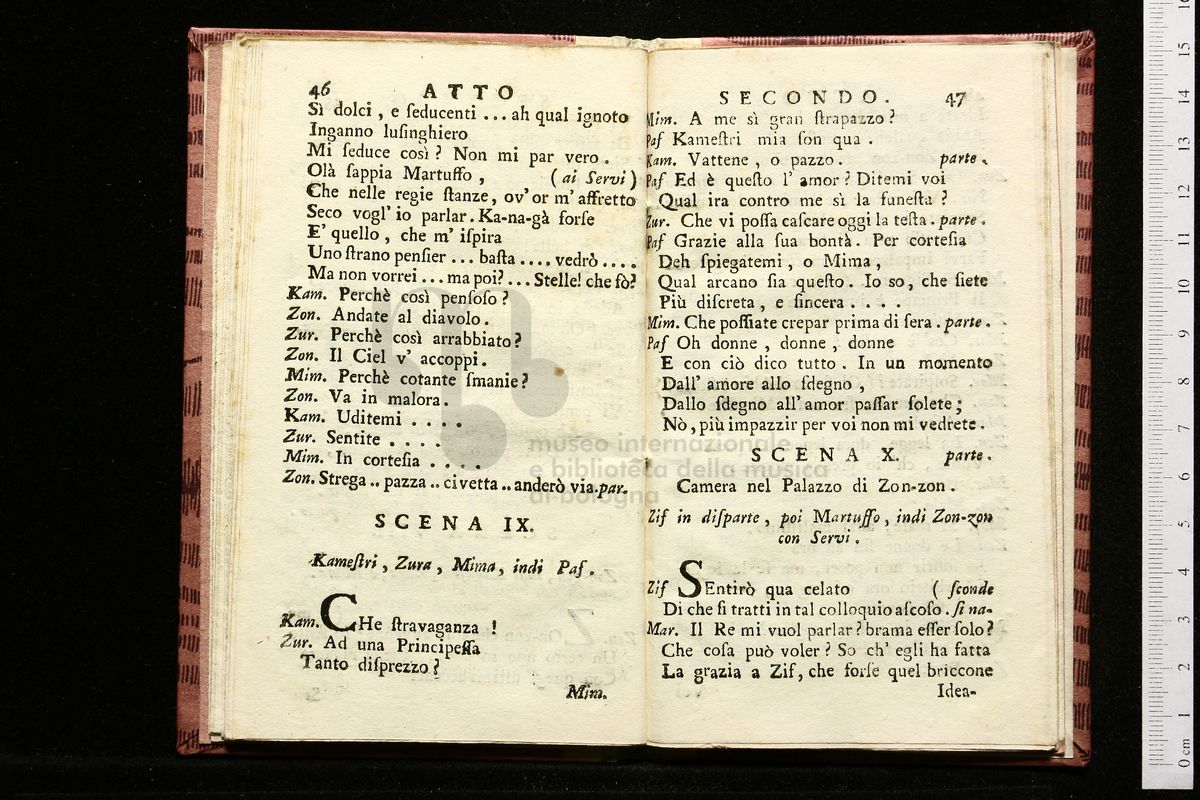 46 ATTO
Sì dolci, e ſeducenti ... ah qual ignoto
Inganno luſinghiero
Mi ſeduce così? Non mi par vero.
Olà ſappia Martuffo, (ai Servi)
Che nelle regie ſtanze, ov' or m' affretto
Seco vogl' io parlar. Ka-na-gà forſe
E' quello, che m' iſpira
Uno ſtrano penſier ... baſta .... vedrò ....
Ma non vorrei ... ma poi? ... Stelle! che fò?
Kam. Perchè così penſoſo?
Zon. Andate al diavolo.
Zur. Perchè così arrabbiato?
Zon. Il Ciel v' accoppi.
Mim. Perchè cotante ſmanie?
Zon. Va in malora.
Kam. Uditemi ....
Zur. Sentite ....
Mim. In corteſia ....
Zon. Strega .. pazza .. civetta .. anderò via. par.
SCENA IX.
Kameſtri, Zura, Mima, indi Paſ.
Kam. CHe ſtravaganza!
Zur. Ad una Principeſſa
Tanto diſprezzo?
Mim.
SECONDO. 47
Mim. A me sì gran ſtrapazzo?
Paſ Kameſtri mia ſon qua.
Kam. Vattene, o pazzo. parte.
Paſ Ed è queſto l' amor? Ditemi voi
Qual ira contro me sì la funeſta?
Zur. Che vi poſſa caſcare oggi la teſta. parte.
Paſ Grazie alla ſua bontà. Per corteſia
Deh ſpiegatemi, o Mima,
Qual arcano ſia queſto. Io so, che ſiete
Più diſcreta, e ſincera ....
Mim. Che poſſiate crepar prima di ſera. parte.
Paſ Oh donne, donne, donne
E con ciò dico tutto. In un momento
Dall' amore allo ſdegno,
Dallo ſdegno all' amor paſſar ſolete;
Nò, più impazzir per voi non mi vedrete.
SCENA X. parte.
Camera nel Palazzo di Zon-zon.
Zif in diſparte, poi Martuffo, indi Zon-zon
con Servi.
Zif SEntirò qua celato (ſconde
Di che ſi tratti in tal colloquio aſcoſo. ſi na-
Mar. Il Re mi vuol parlar? brama eſſer ſolo?
Che coſa può voler? So ch' egli ha fatta
La grazia a Zif, che forſe quel briccone
Idea-
museo internazionale
e biblioteca della musica
di bologna
0 cm 1 2 3 4 5 6 7 8 9 10 11 12 13 14 15 16